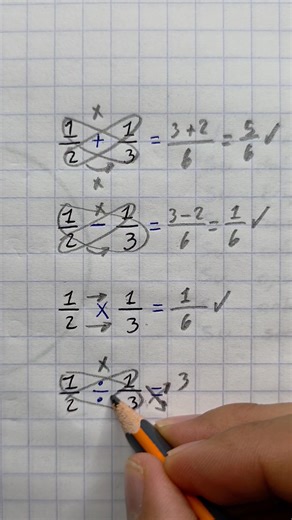 x
1/2 + 1/3 = 3+2/6 = 5/6 ✓
x
x
1/2 − 1/3 = 3−2/6 = 1/6 ✓
1/2 x 1/3 = 1/6 ✓
x
1/2 ÷ 1/3 = 3